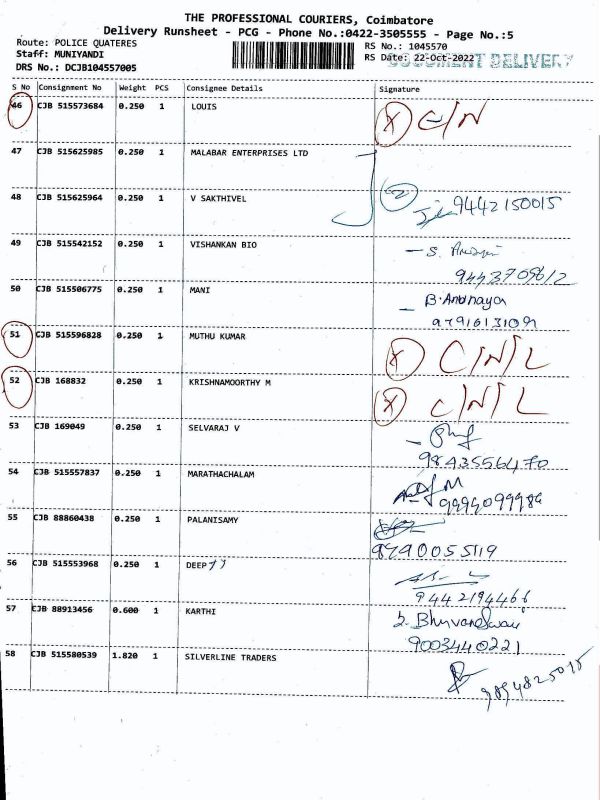 THE PROFESSIONAL COURIERS, Coimbatore
Delivery Runsheet - PCG - Phone No.:0422-3505555 - Page No.:5
Route: POLICE QUATERES
RS No.: 1045570
Staff: MUNIYANDI
RS Date: 22-Oct-2022
DOCUMENT DELIVERY
DRS No.: DCJB104557005
S No Consignment No Weight PCS Consignee Details Signature
46 CJB 515573684 0.250 1 LOUIS X C/N
47 CJB 515625985 0.250 1 MALABAR ENTERPRISES LTD
48 CJB 515625964 0.250 1 V SAKTHIVEL 2 9442150015
49 CJB 515542152 0.250 1 VISHANKAN BIO - S.
9443709612
50 CJB 515506775 0.250 1 MANI
51 CJB 515596828 0.250 1 MUTHU KUMAR X C/N/L
52 CJB 168832 0.250 1 KRISHNAMOORTHY M X C/N/L
53 CJB 169049 0.250 1 SELVARAJ V
9843556470
54 CJB 515557837 0.250 1 MARATHACHALAM
55 CJB 88860438 0.250 1 PALANISAMY
9790055119
56 CJB 515553968 0.250 1 DEEP
9442194466
57 CJB 88913456 0.600 1 KARTHI
9003440221
58 CJB 515580539 1.820 1 SILVERLINE TRADERS
9894825015